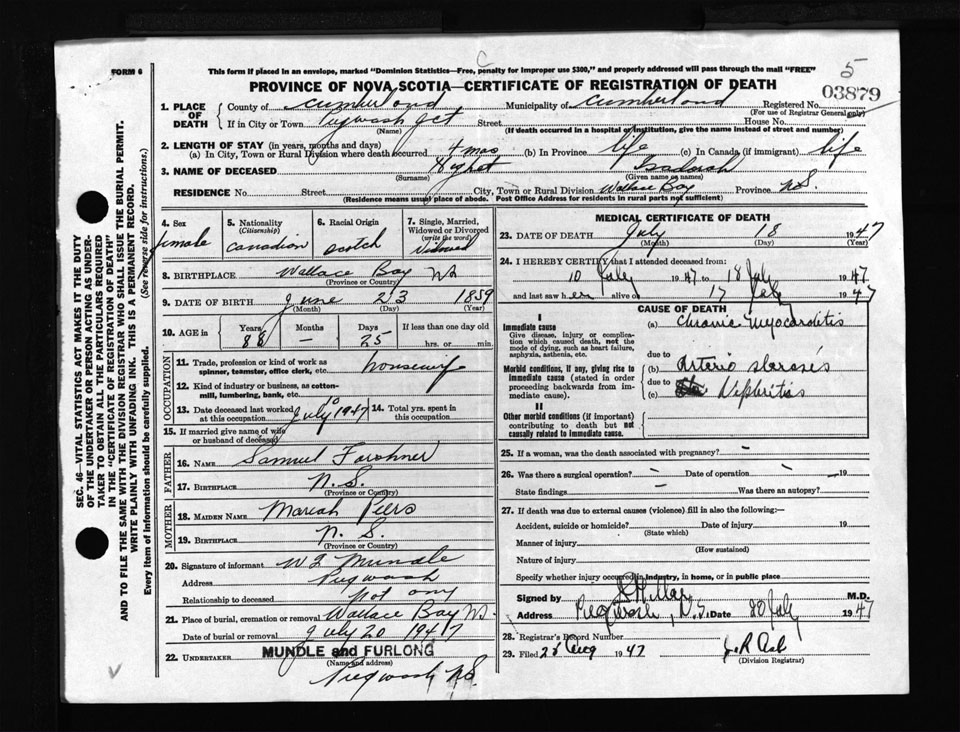 5
C
FORM 6
This form if placed in an envelope, marked "Dominion Statistics—Free, penalty for improper use $300," and properly addressed will pass through the mail "FREE"
PROVINCE OF NOVA SCOTIA—CERTIFICATE OF REGISTRATION OF DEATH
03879
1. PLACE OF DEATH County of Cumberland Municipality of Cumberland Registered No.
(For use of Registrar General only)
If in City or Town Pugwash Jct Street House No.
(Name) (If death occurred in a hospital or institution, give the name instead of street and number)
2. LENGTH OF STAY (in years, months and days)
(a) In City, Town or Rural Division where death occurred 4 mos (b) In Province life (c) In Canada (if immigrant) life
3. NAME OF DECEASED
(Surname) (Given name or names)
RESIDENCE No. Street City, Town or Rural Division Wallace Bay Province N.S.
(Residence means usual place of abode. Post Office Address for residents in rural parts not sufficient)
4. Sex
female
5. Nationality
(Citizenship)
Canadian
6. Racial Origin
scotch
7. Single, Married, Widowed or Divorced
(write the word)
Widowed
8. BIRTHPLACE Wallace Bay NS
(Province or Country)
9. DATE OF BIRTH June 23 1859
(Month) (Day) (Year)
10. AGE in
Years Months Days If less than one day old
88 — 25 hrs. or min.
OCCUPATION
11. Trade, profession or kind of work as spinner, teamster, office clerk, etc. housewife
12. Kind of industry or business, as cotton-mill, lumbering, bank, etc.
13. Date deceased last worked at this occupation July 10 1947 14. Total yrs. spent in this occupation
15. If married give name of wife or husband of deceased
FATHER
16. NAME Samuel
17. BIRTHPLACE N.S.
(Province or Country)
MOTHER
18. MAIDEN NAME Mariah Peers
19. BIRTHPLACE N.S.
(Province or Country)
20. Signature of informant Mundle
Address Pugwash
Relationship to deceased Not any
21. Place of burial, cremation or removal Wallace Bay NS
Date of burial or removal July 20 1947
22. UNDERTAKER MUNDLE and FURLONG
(Name and address)
Pugwash N.S.
MEDICAL CERTIFICATE OF DEATH
23. DATE OF DEATH July 18 1947
(Month) (Day) (Year)
24. I HEREBY CERTIFY that I attended deceased from:
10 July 1947 to 18 July 1947
and last saw her alive on 17 July 1947
CAUSE OF DEATH
I
Immediate cause
Give disease, injury or complication which caused death, not the mode of dying, such as heart failure, asphyxia, asthenia, etc.
(a) Chronic Myocarditis
due to
Morbid conditions, if any, giving rise to immediate cause (stated in order proceeding backwards from immediate cause).
(b) Arterio
due to
(c) Nephritis
II
Other morbid conditions (if important) contributing to death but not causally related to immediate cause.
25. If a woman, was the death associated with pregnancy? –
26. Was there a surgical operation? – Date of operation – 19
State findings – Was there an autopsy? –
27. If death was due to external causes (violence) fill in also the following:—
Accident, suicide or homicide? Date of injury 19
(State which)
Manner of injury
(How sustained)
Nature of injury
Specify whether injury occurred in industry, in home, or in public place
Signed by M.D.
Address Pugwash, N.S. Date 20 July 1947
28. Registrar's Record Number
29. Filed Aug 1947
(Division Registrar)
SEC. 46—VITAL STATISTICS ACT MAKES IT THE DUTY
OF THE UNDERTAKER OR PERSON ACTING AS UNDERTAKER TO OBTAIN ALL THE PARTICULARS REQUIRED
IN THE "CERTIFICATE OF REGISTRATION OF DEATH"
AND TO FILE THE SAME WITH THE DIVISION REGISTRAR WHO SHALL ISSUE THE BURIAL PERMIT.
WRITE PLAINLY WITH UNFADING INK. THIS IS A PERMANENT RECORD.
Every item of information should be carefully supplied. (See reverse side for instructions.)